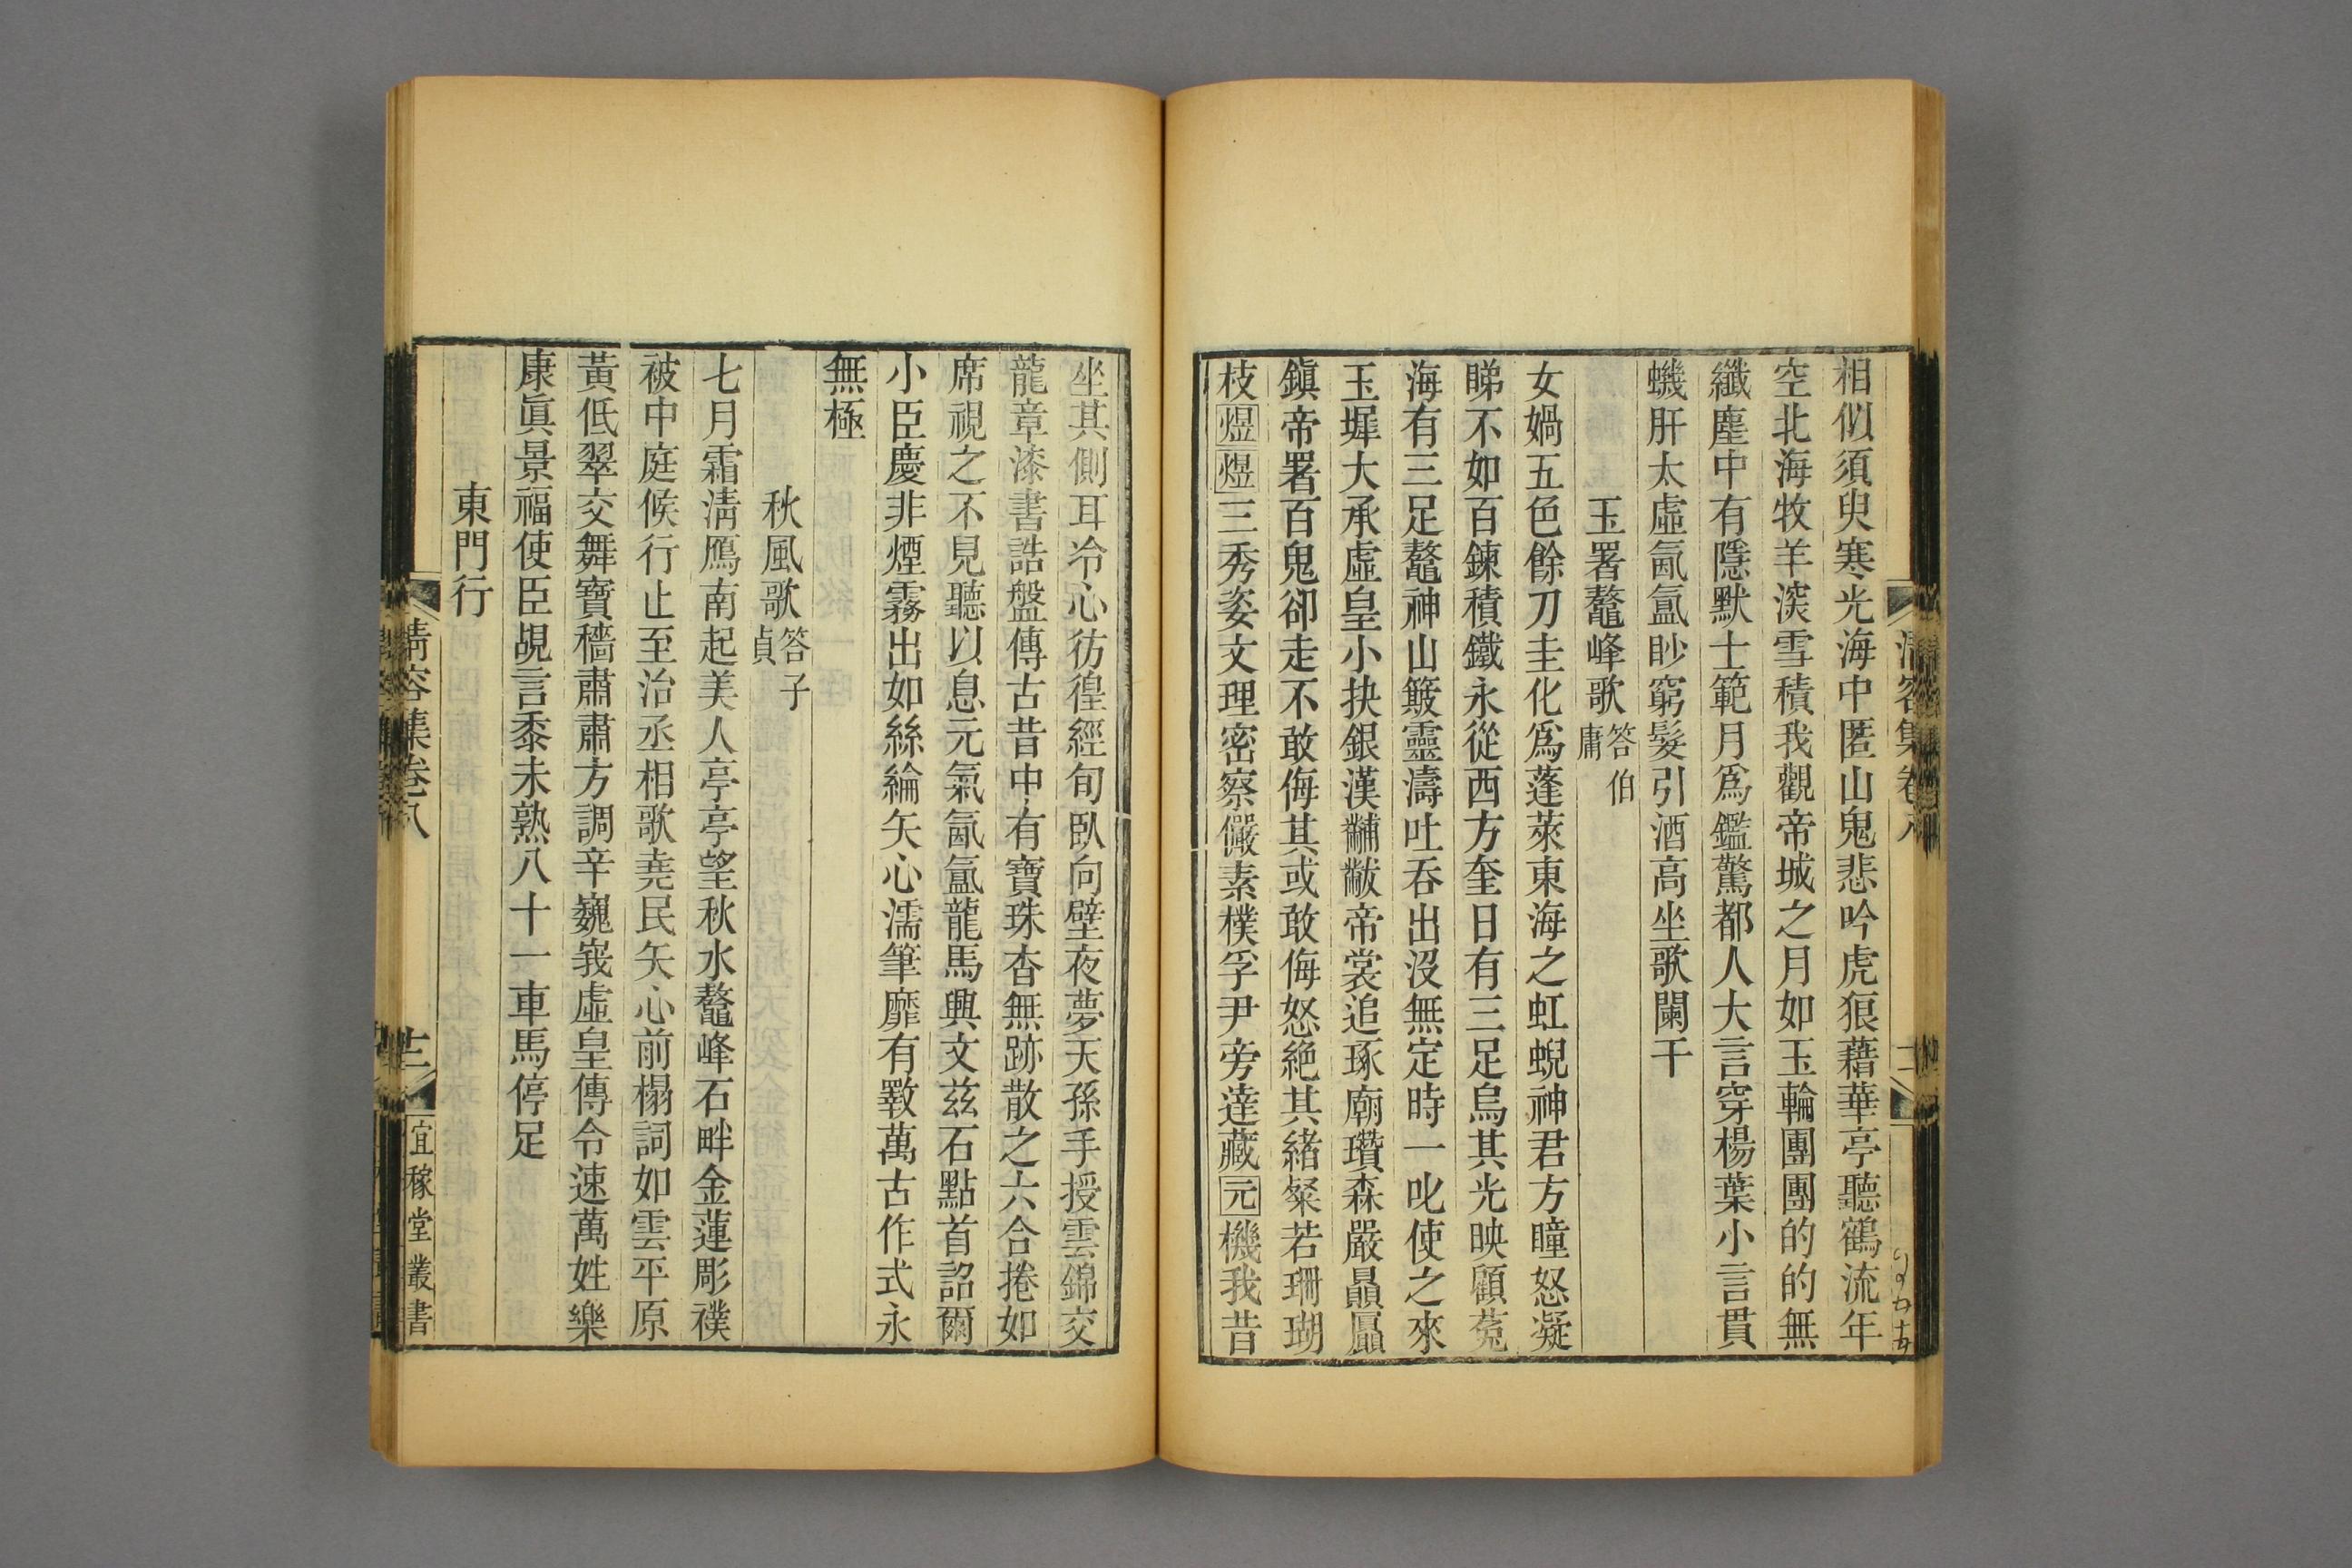 相似須臾寒光海中匿山鬼悲吟虎狼藉華亭聽鶴流年
空北海牧羊滾雪積我觀帝城之月如玉輪團團的的無
纖塵中有隱默士範月爲鑑驚都人大言穿楊葉小言貫
蟣肝太虛氤氳眇窮髮引酒高坐歌闌干
玉署鼇峰歌答伯庸
女媧五色餘刀圭化爲蓬萊東海之虹蜺神君方瞳怒凝
睇不如百鍊積鐵永從西方奎日有三足烏其光映顧菟
海有三足鼇神山簸靈濤吐吞出沒無定時一叱使之來
玉墀大承虛皇小抉銀漢黼黻帝裳追琢廟瓚森嚴贔屭
鎭帝署百鬼卻走不敢侮其或敢侮怒絶其緒粲若珊瑚
枝煜煜三秀姿文理密察儼素樸孚尹旁達藏元機我昔
坐其側耳冷心彷徨經旬臥向壁夜夢天孫手授雲錦交
龍章漆書誥盤傳古昔中有寶珠杳無跡散之六合捲如
席視之不見聽以息元氣氤氳龍馬興文茲石點首詔爾
小臣慶非煙霧出如絲綸矢心濡筆靡有斁萬古作式永
無極
秋風歌答子貞
七月霜淸鴈南起美人亭亭望秋水鼇峰石畔金蓮彫襆
被中庭候行止至治丞相歌堯民矢心前榻詞如雲平原
黃低翠交舞寶穡肅肅方調辛巍峩虛皇傳令速萬姓樂
康眞景福使臣覘言黍未熟八十一車馬停足
東門行
淸容集卷八
宜稼堂叢書